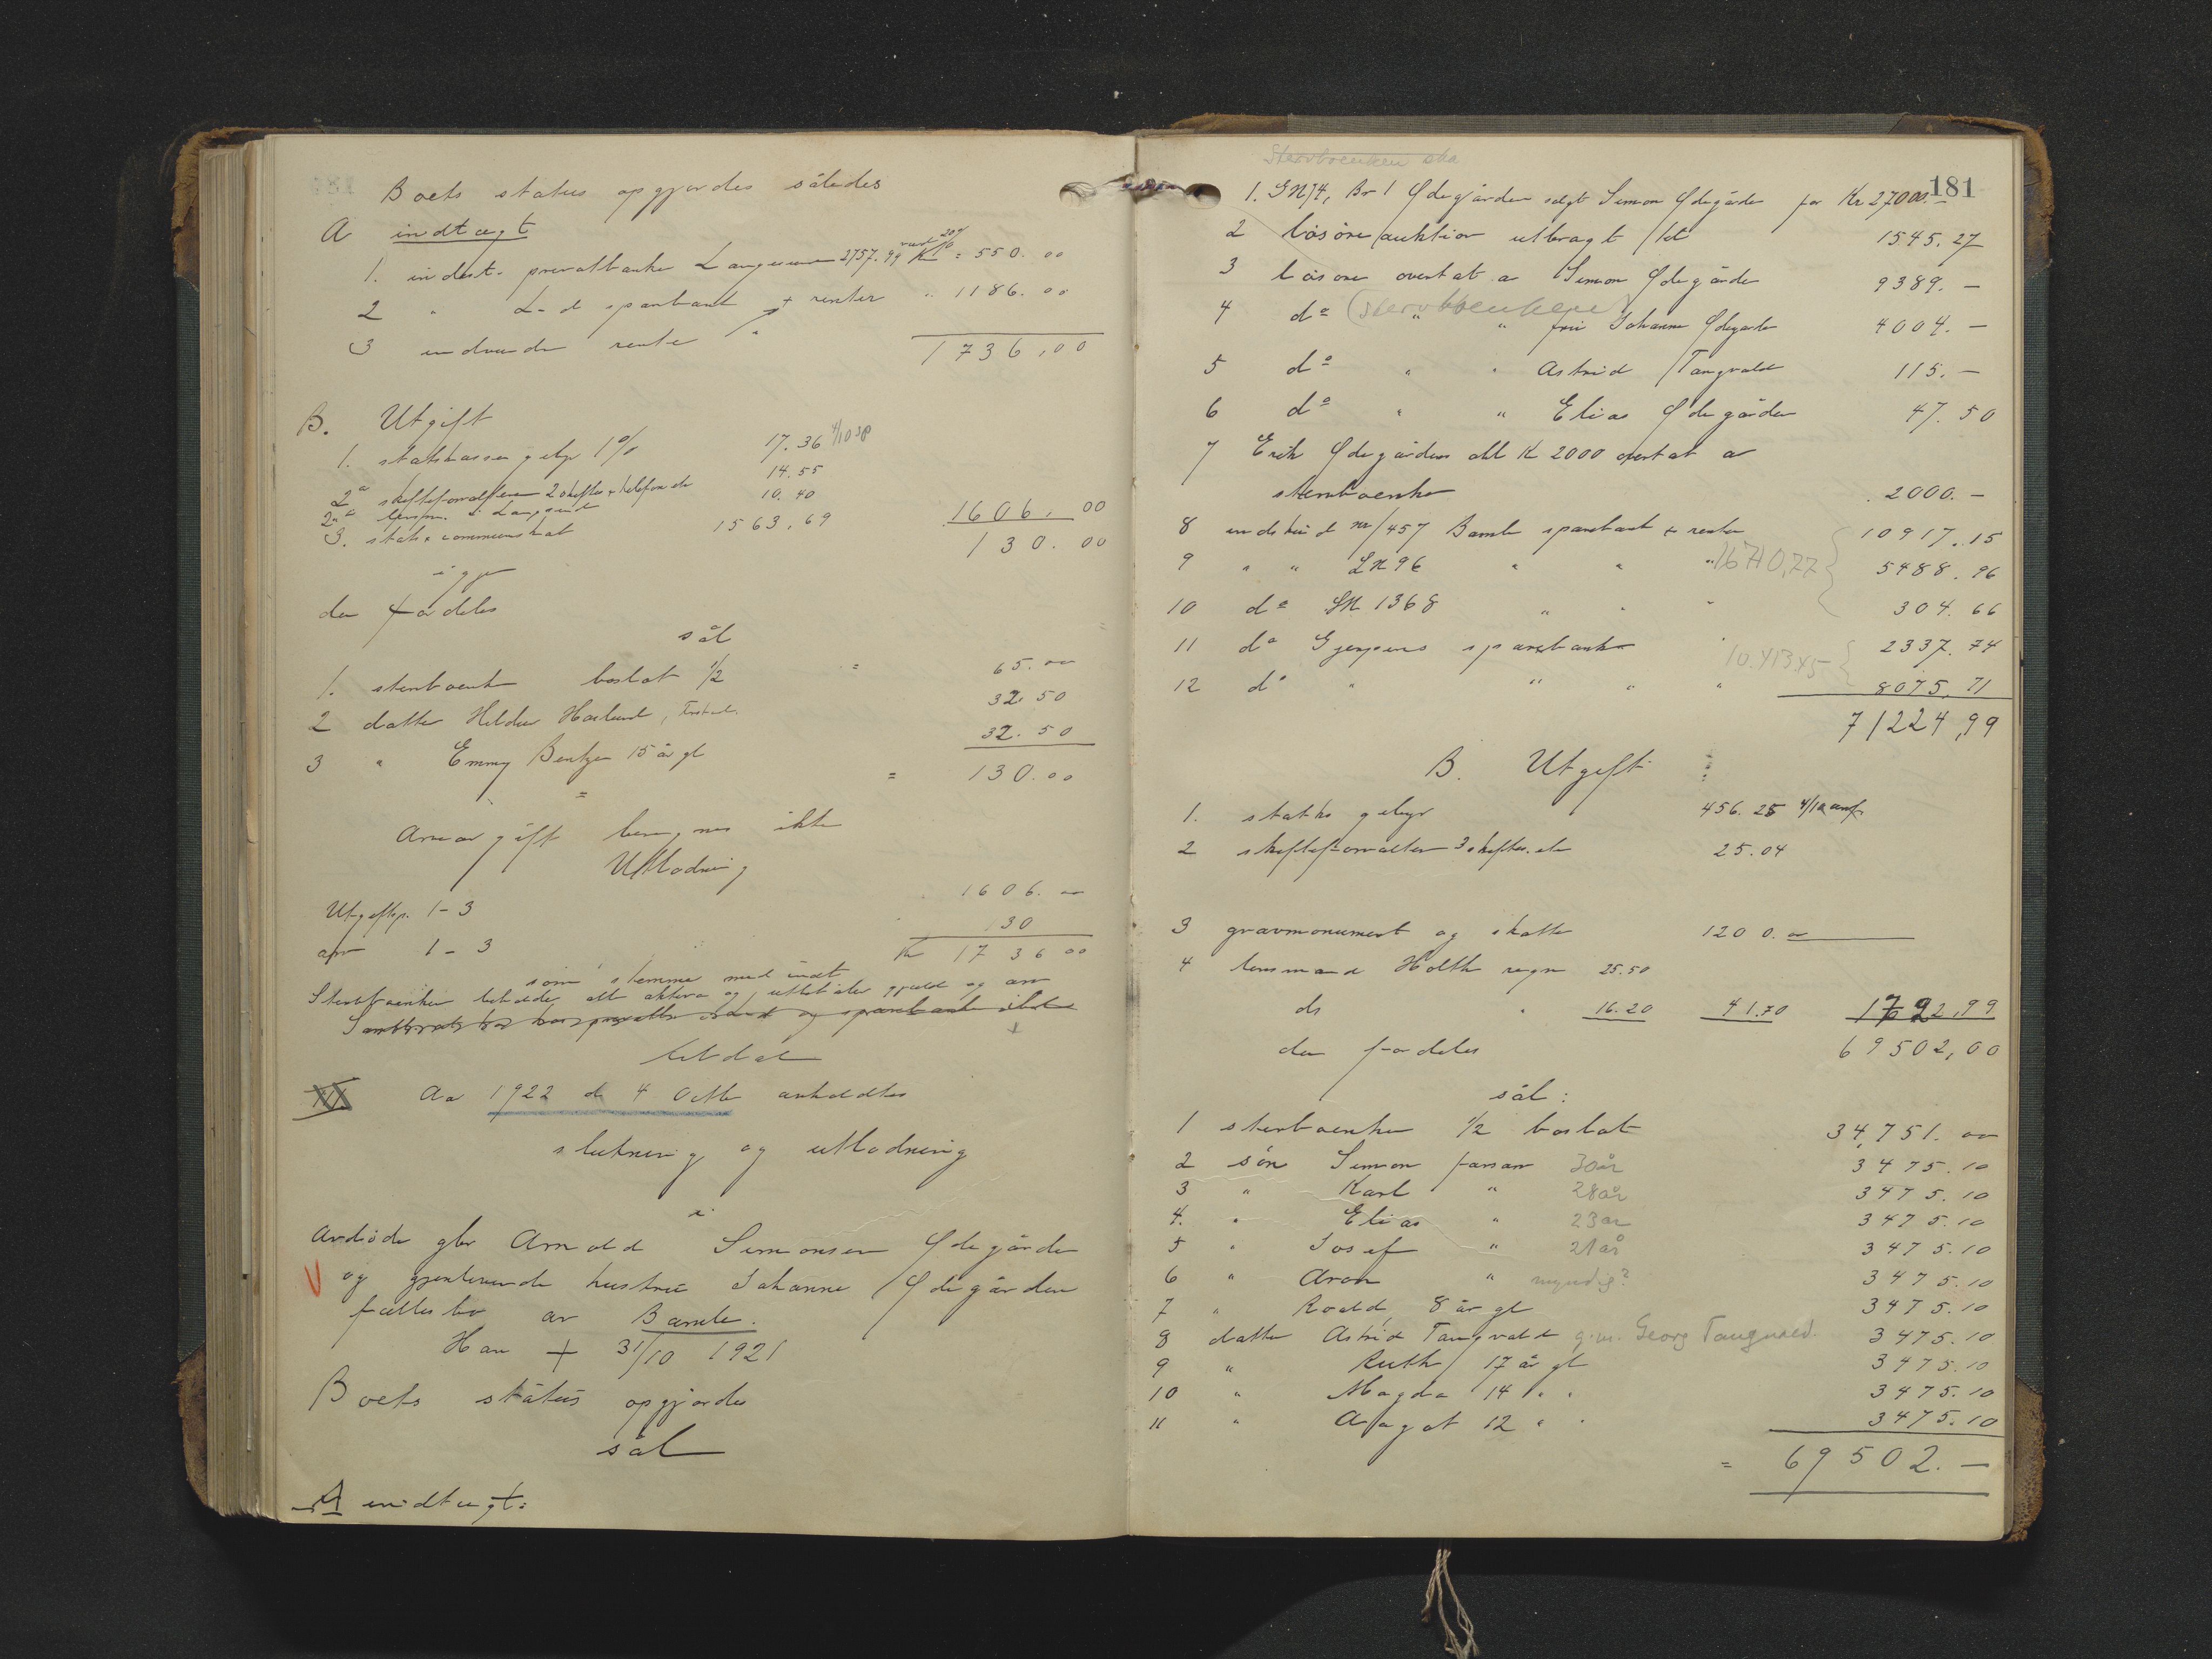 Boets status opgjordes således
A indtægt
1. indest. privatbanken Langesund 2757.99 værd 20% = 550.00
2 " L-d sparebank + renter " 1186.00
3 renter "
1736,00
B. Utgift
1. statskassen gebyr 1% 17.36 4/10
2 a skifteforvalteren 2 skifter + telefon etc 14.55
2 b lensm. i Langesund 10.40
3. stats & communeskat 1563,69 1606,00
130.00
igjen
der fordeles
sål
1. sterboenken boslot 1/2 = 65.00
2 datter Hilda, 32.50
3 " Emmy Bentzen 15 år gl 32.50
= = 130.00
Arveavgift beregnes ikke
Utlodning
Utgiftsp. 1-3 1606.00
arv 1-3 130
Kr 1736 00
som stemmer med indt
Sterboenken beholder alle aktiva og utbetaler gjæld og arv
XX Aar 1922 d 4 Octbr avholdtes
slutning og utlodning
i
Avdøde gbr Arnold Simonsen Ødegården
V og gjenlevende hustru Johanne Ødegården
fællesbo av Bamle.
Han + 31/10 1921
Boets status opgjordes
sål
A indtægt:
181
Stervboenken
1. GN 74, Br 1 Ødegården solgt Simon Ødegården for Kr 27000.-
2 løsøreauktion utbragt til 1545.27
3 løsøre overtat a Simon Ødegården 9389.-
4 do (stervboenken) " " fru Johanne Ødegården 4004.-
5 do " " Astrid Tangvald 115.-
6 do " " Elias Ødegården 47.50
7 Erik Ødegårdens obl Kr 2000 overtat av
sterboenken 2000.-
8 indskud nr 1457 Bamle sparebank + renter 10917.15
9 " " LN 96 " " " 16710,77 5488.96
10 do SN 1368 " " " 304.66
11 do Gjerpens sparebank " 2337.74
12 do " " " " 10.413.45 8075.71
71224,99
B. Utgift :
1. statks gebyr 456.25 4/10
2 skifteforvalteren 3 skifter etc 25.04
3 gravmonument og skatter 1200.00
4 lensmand Holth regn 25.50
do " 16.20 41.70 1722,99
der fordeles 69502,00
sål:
1 sterboenken 1/2 boslot 34,751.00
2 søn Simon farsarv 30 år 3475.10
3 " Karl " 28 år 3475.10
4. " Elias " 23 år 3475.10
5 " Josef " 21 år 3475.10
6 " Aron " myndig? 3475.10
7 " Roald, 8 år gl 3475.10
8 datter Astrid Tangvald g.m. Georg Tangvald. 3475.10
9 " Ruth 17 år gl 3475.10
10 " Magda 14 " " 3475.10
11 " Aagot 12 " " 3475.10
= 69502.-